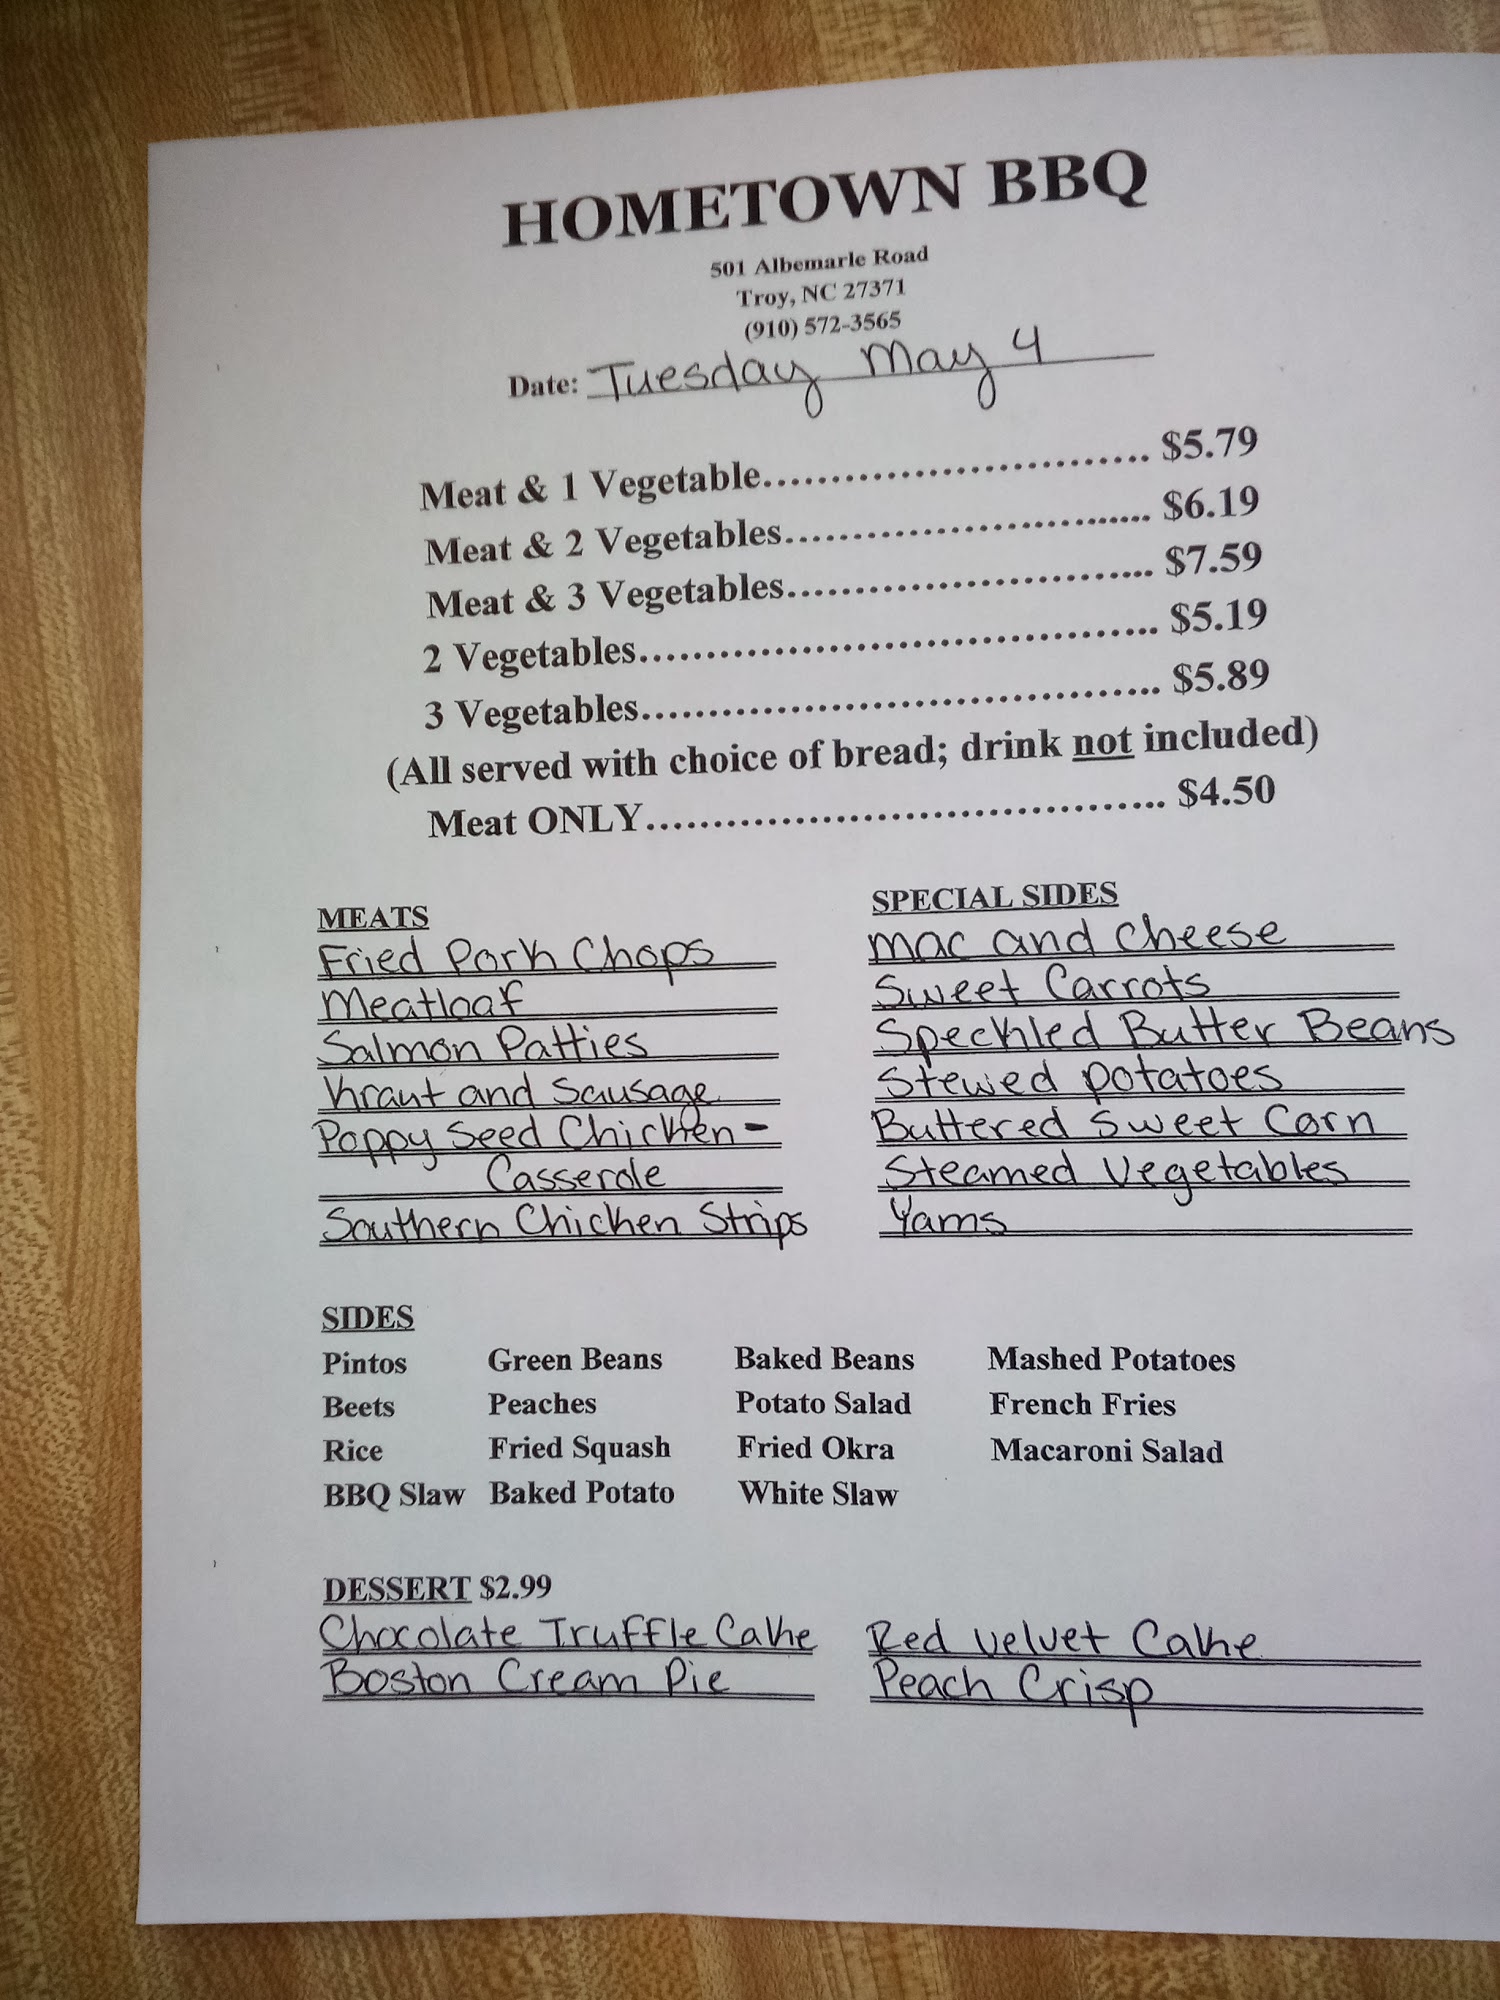 HOMETOWN BBQ
501 Albemarle Road
Troy, NC 27371
(910) 572-3565
Date: Tuesday May 4
Meat & 1 Vegetable................................. $5.79
Meat & 2 Vegetables................................ $6.19
Meat & 3 Vegetables................................ $7.59
2 Vegetables............................................. $5.19
3 Vegetables............................................. $5.89
(All served with choice of bread; drink not included)
Meat ONLY............................................. $4.50
MEATS
Fried Pork Chops
Meatloaf
Salmon Patties
Kraut and Sausage
Poppy Seed Chicken-
Casserole
Southern Chicken Strips
SPECIAL SIDES
Mac and Cheese
Sweet Carrots
Speckled Butter Beans
Stewed potatoes
Buttered Sweet Corn
Steamed Vegetables
Yams
SIDES
Pintos Green Beans Baked Beans Mashed Potatoes
Beets Peaches Potato Salad French Fries
Rice Fried Squash Fried Okra Macaroni Salad
BBQ Slaw Baked Potato White Slaw
DESSERT $2.99
Chocolate Truffle Cake Red Velvet Cake
Boston Cream Pie Peach Crisp